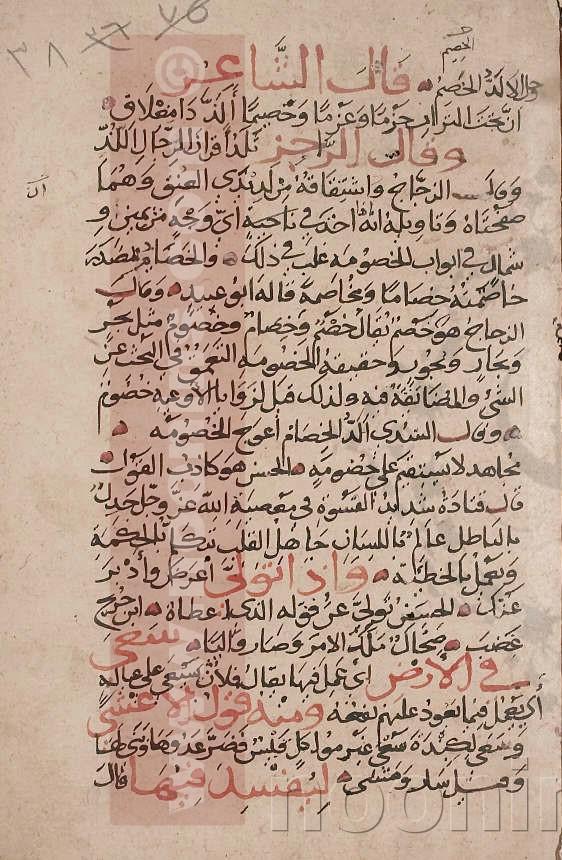 الخصم
٣٨ ٣٦ ٧٥
الالد الخصم قال الشاعر
ان تحت التراب حزما وعزما وخصيما ألد ذا مغلاق
وقال الراجز تلد أقران الرجال اللد
وقال الزجاج واشتقاقه من لديدي العنق وهما
صفحتاه وتاويله انه اخذ في ناحية اي وجه من يمين و
شمال في ابواب الخصومه غلب في ذلك والخصام مصدر
خاصمته خصاما ومخاصمة قاله ابو عبيد وقال
الزجاج هو خصم يقال خصم وخصام وخصوم مثل بحر
وبحار وبحور وحقيقة الخصومه التعمق في البحث عن
الشي والمضائقة فيه ولذلك قيل لزوايا الاوعية خصوم
وقال السدي الد الخصام أعوج الخصومه
مجاهد لا يستقيم على خصومة الحسن هو كاذب القول
قال قتادة شديد القسوة في معصية الله عز وجل جدل
بالباطل عالم باللسان جاهل القلب يتكلم بالحكمة
ويعمل بالخطيئة واذا تولى أعرض وأدبر
عنك الحسن تولى عن قوله الذي اعطاه ابن جريج
غضب ضحاك ملك الامر وصار واليا سعى
في الارض اي عمل فيها يقال فلان يسعى على عياله
أي يعمل فيما يعود عليهم نفعه ومنه قول الاعشى
وسعى لكندة سعي غير مواكل قيس فضر عدوها وبنى لها
وقيل سار ومشى ليفسد فيها قال
noormi